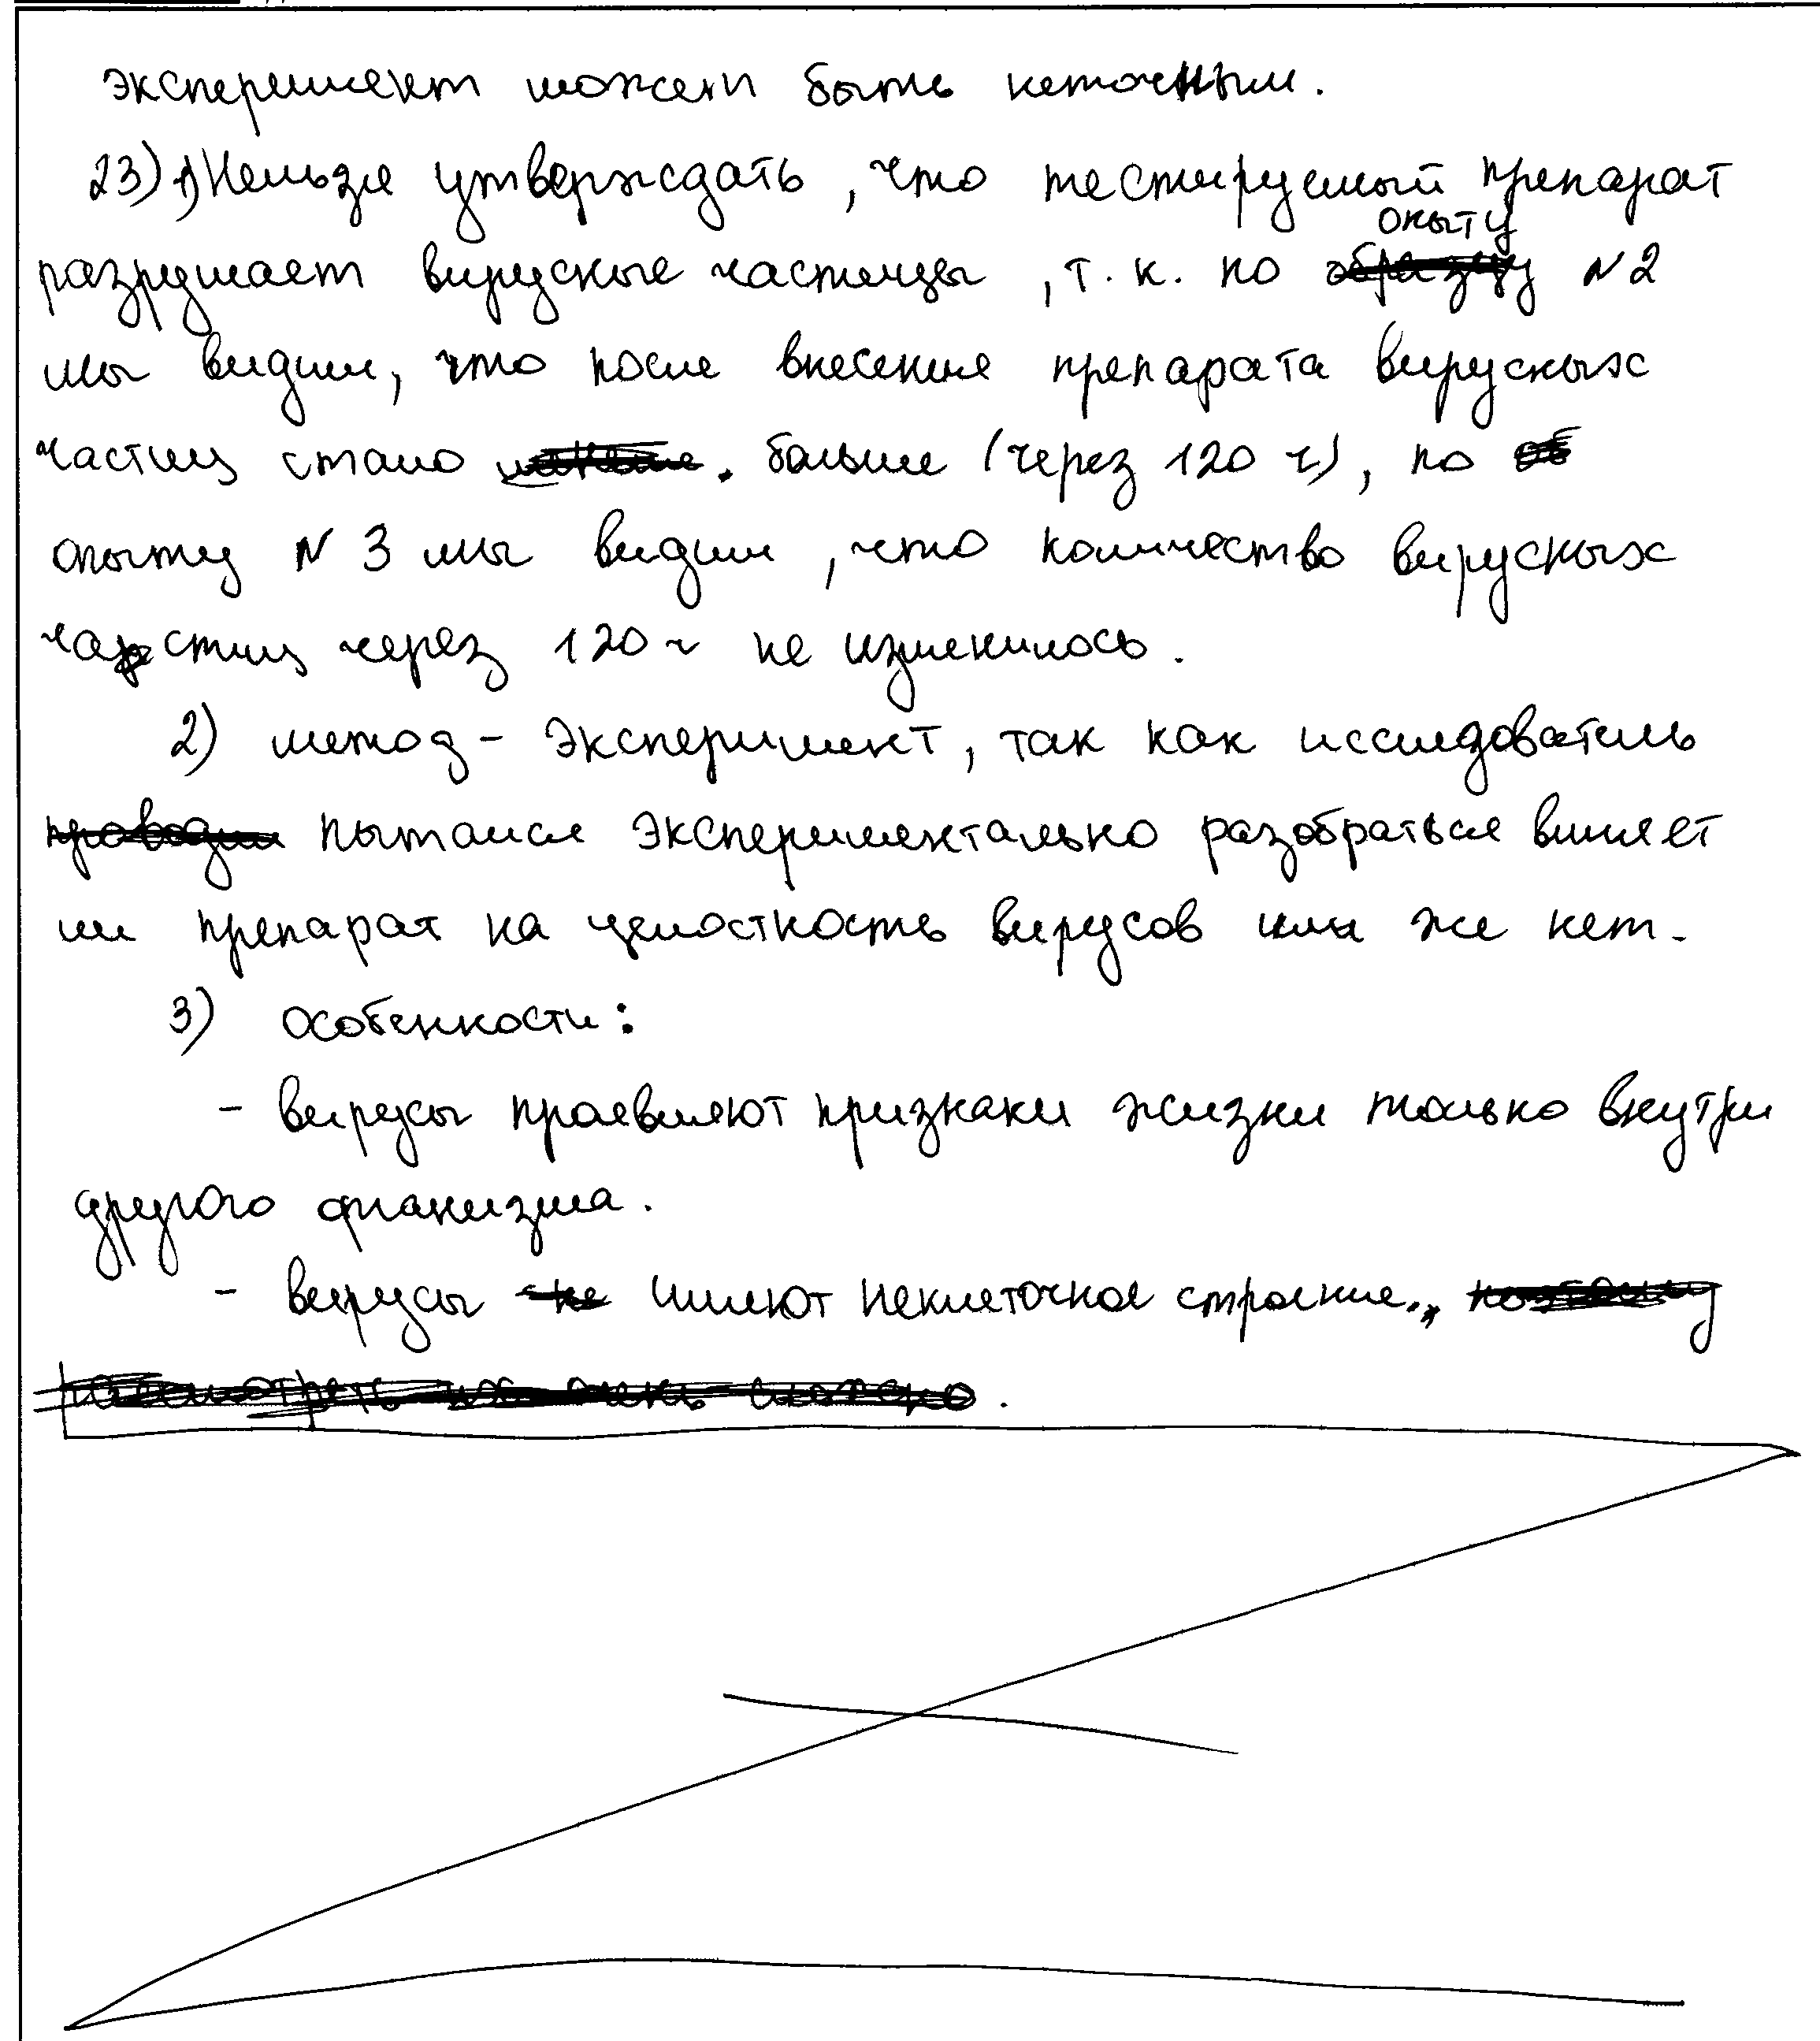 эксперимент может быть неточным.
23) 1) Нельзя утверждать, что тестируемый препарат
разрушает вирусные частицы, т.к. по опыту №2
мы видим, что после внесения препарата вирусных
частиц стало больше (через 120 ч), по
опыту №3 мы видим, что количество вирусных
частиц через 120 ч не изменилось.
2) метод - эксперимент, так как исследователь
пытался экспериментально разобраться влияет
ли препарат на целостность вирусов или же нет.
3) Особенности:
- вирусы проявляют признаки жизни только внутри
другого организма.
- вирусы имеют неклеточное строение.